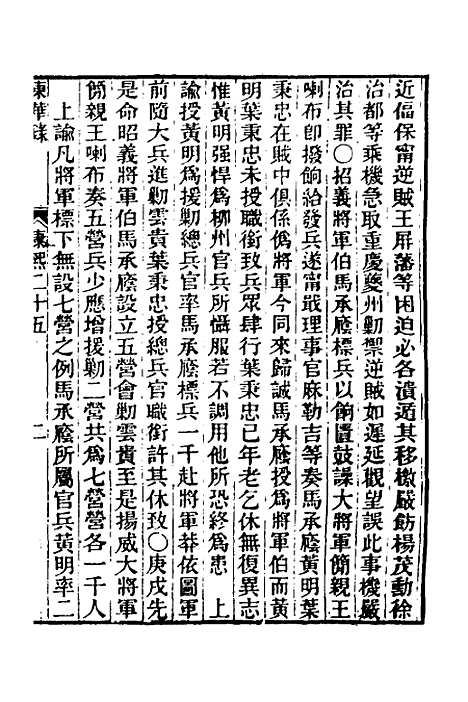 近偪保甯逆賊王屏藩等困迫必各潰遁其移檄嚴飭楊茂勳徐
治都等乘機急取重慶夔州勦禦逆賊如遲延觀望誤此事機嚴
治其罪○招義將軍伯馬承廕標兵以餉匱鼓譟大將軍簡親王
喇布卽撥餉給發兵遂甯戢理事官麻勒吉等奏馬承廕黃明葉
秉忠在賊中俱係僞將軍今同來歸誠馬承廕授爲將軍伯而黃
明葉秉忠未授職銜致兵眾肆行葉秉忠已年老乞休無復異志
惟黃明强悍爲柳州官兵所懾服若不調用他所恐終爲患　上
諭授黃明爲援勦總兵官率馬承廕標兵一千赴將軍莽依圖軍
前隨大兵進勦雲貴葉秉忠授總兵官職銜許其休致○庚戌先
是命昭義將軍伯馬承廕設立五營會勦雲貴至是揚威大將軍
簡親王喇布奏五營兵少應增援勦二營共爲七營營各一千人
上諭凡將軍標下無設七營之例馬承廕所屬官兵黃明率二
東華錄　康熙二十五　二